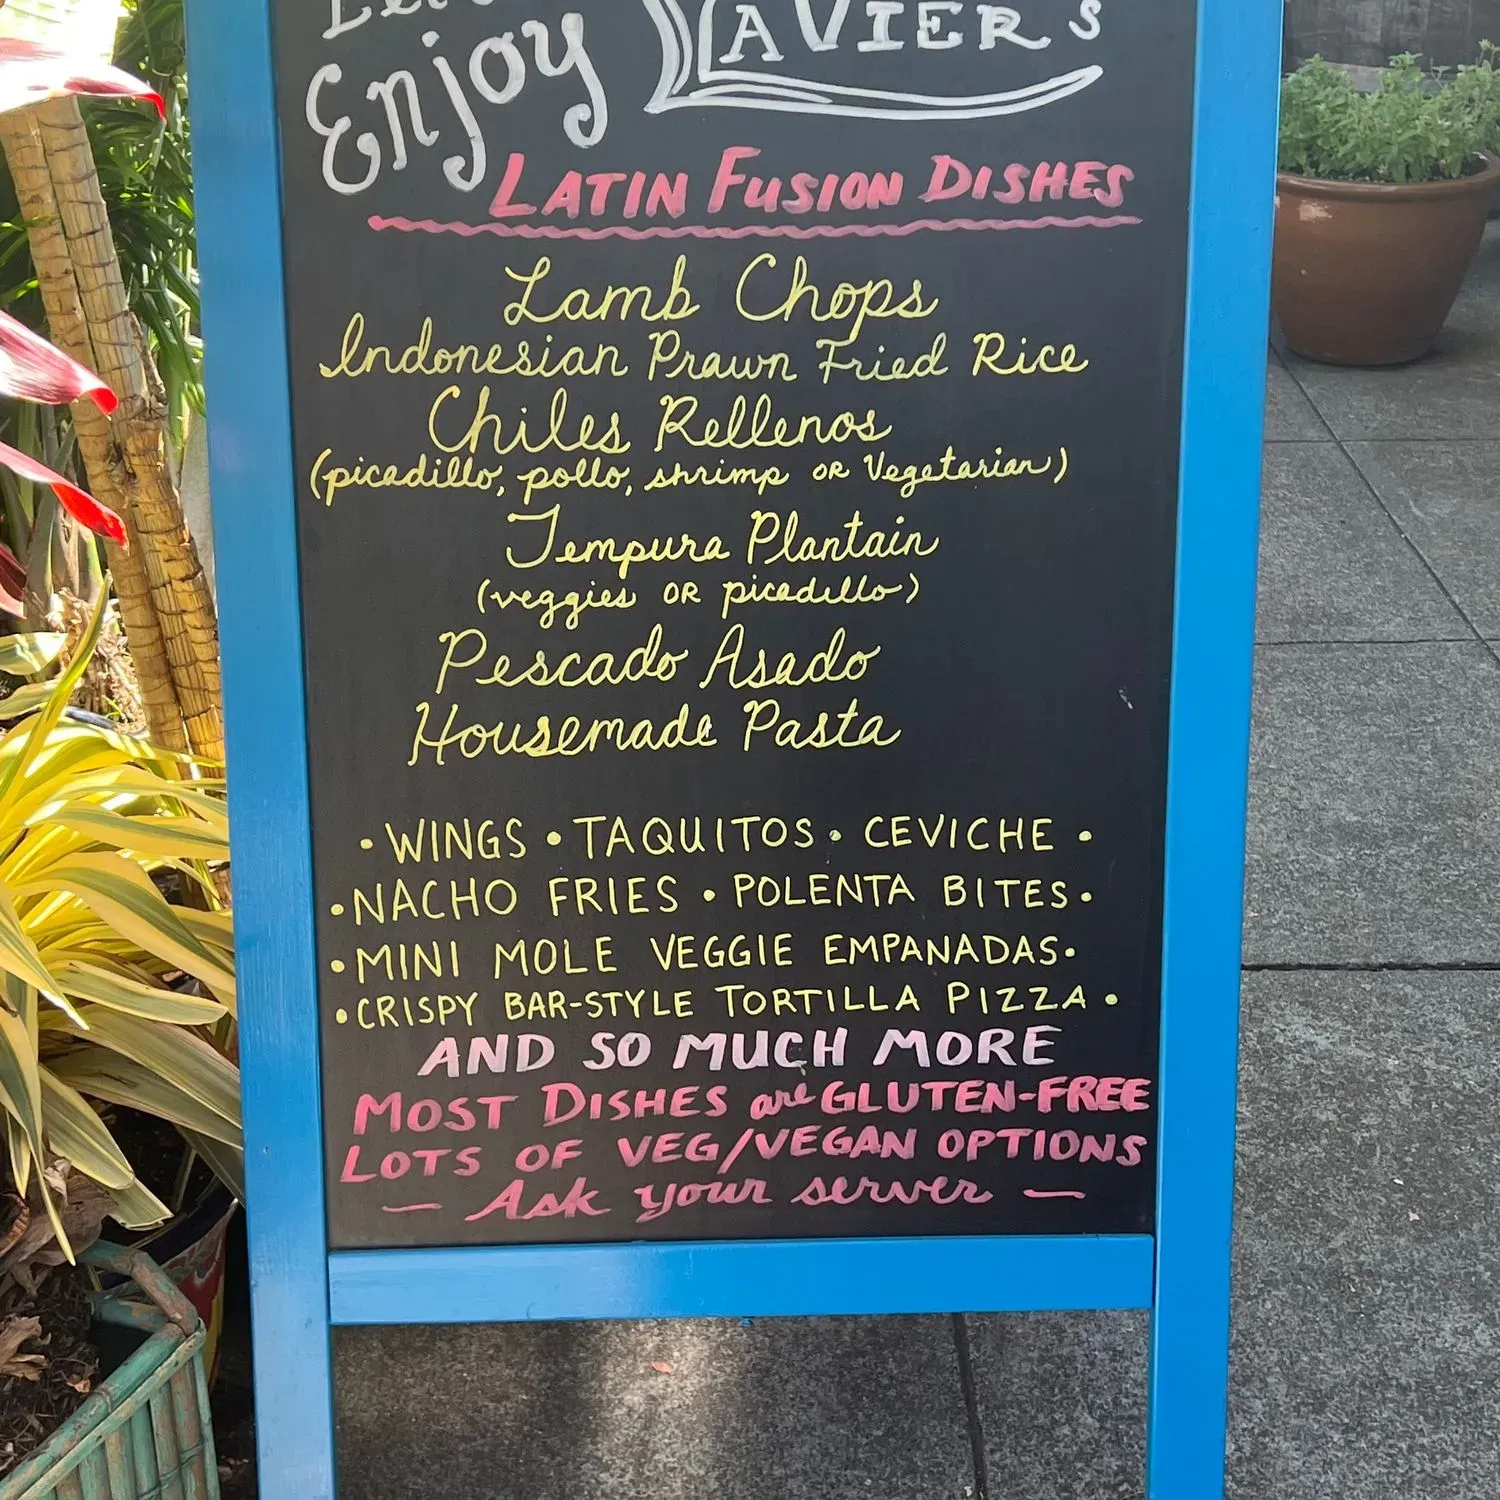 Enjoy XAVIER'S
LATIN FUSION DISHES
Lamb Chops
Indonesian Prawn Fried Rice
Chiles Rellenos
(picadillo, pollo, shrimp OR Vegetarian)
Tempura Plantain
(veggies OR picadillo)
Pescado Asado
Housemade Pasta
• WINGS • TAQUITOS • CEVICHE •
• NACHO FRIES • POLENTA BITES •
• MINI MOLE VEGGIE EMPANADAS •
• CRISPY BAR-STYLE TORTILLA PIZZA •
AND SO MUCH MORE
MOST DISHES are GLUTEN-FREE
LOTS OF VEG/VEGAN OPTIONS
— Ask your server —